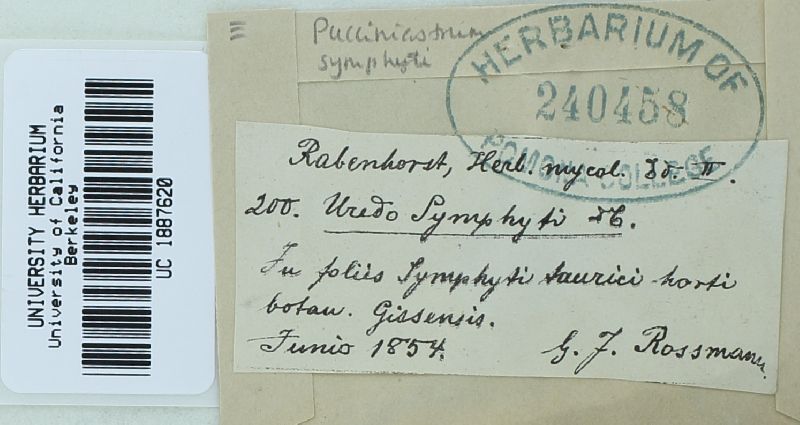 Pucciniastrum
symphyti
HERBARIUM OF
240458
POMONA COLLEGE
UNIVERSITY HERBARIUM
University of California
Berkeley
UC 1887620
Rabenhorst, Herb. mycol. Ed. II.
200. Uredo Symphyti DC.
In foliis Symphyti taurici horti
botan. Gissensis.
Junio 1854. G. J. Rossmann.